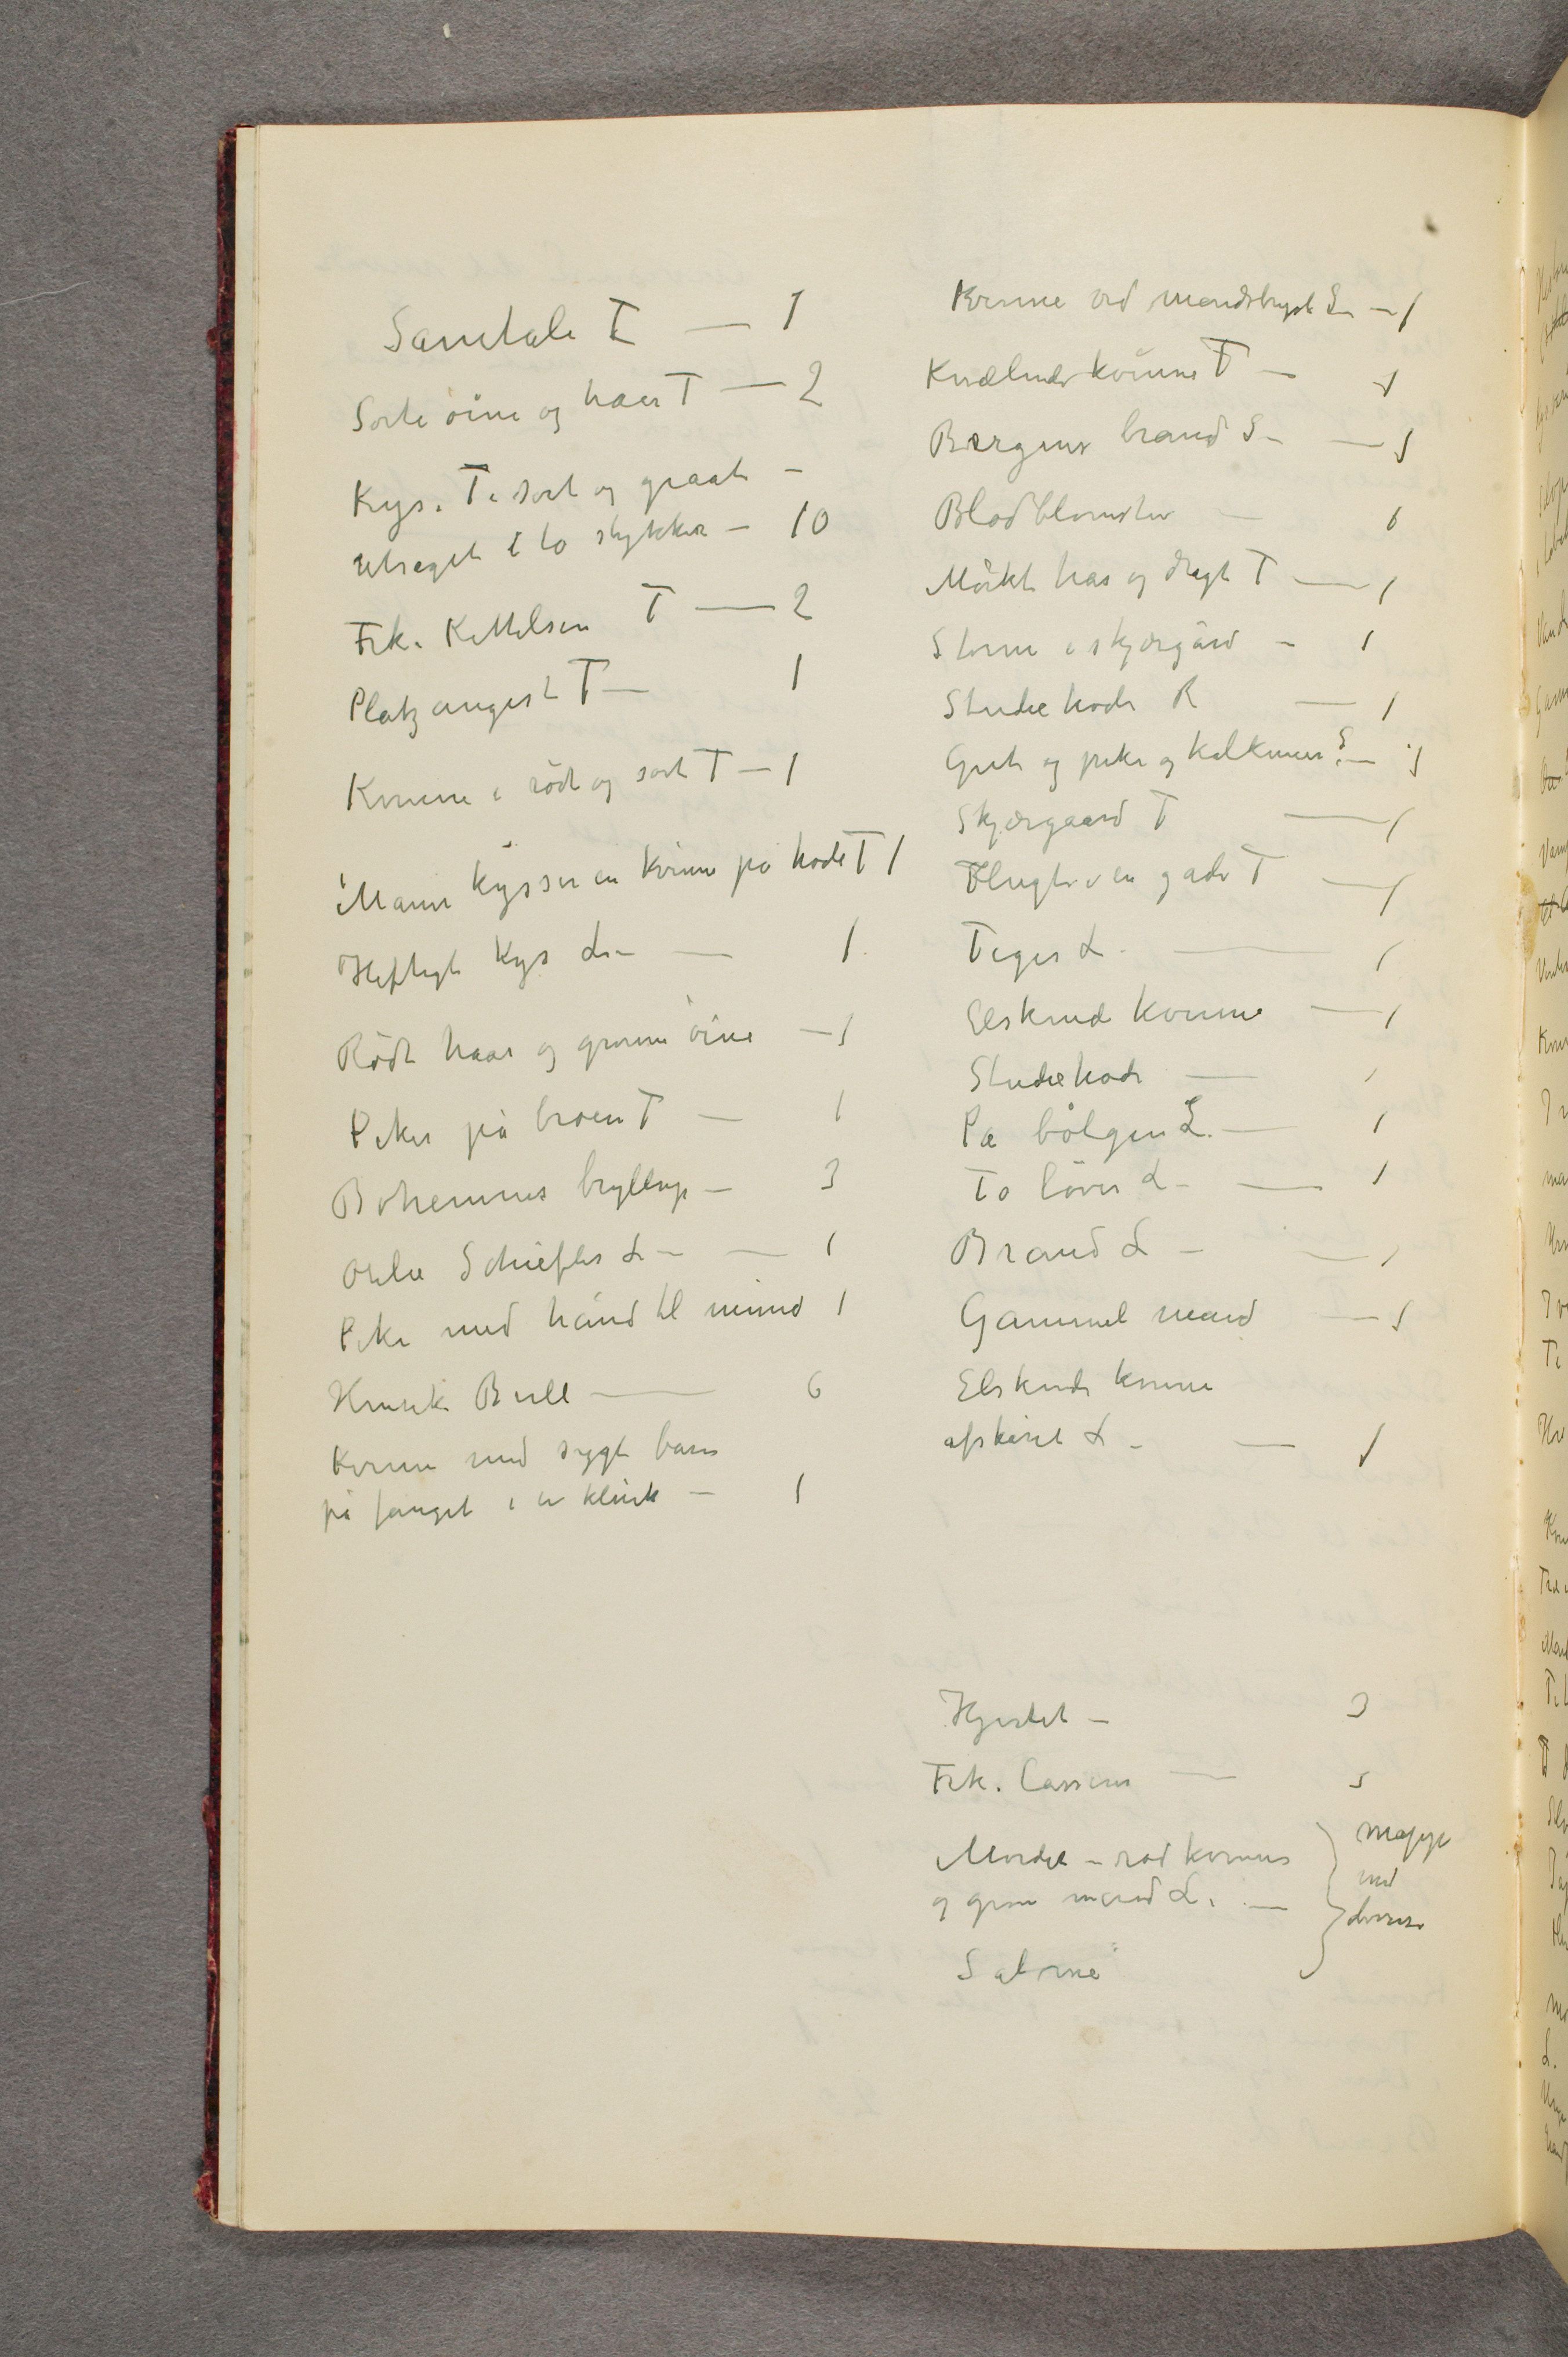 Samtale T — 1
Sorte öine og haar T — 2
Kys. T i sort og graat –
utsaget i to stykker – 10
Frk. Kittelsen T — 2
Platzangest T — 1
Kvinne i rödt og sort T — 1
Mann kysser en kvinne på hode T 1
Heftigt kys L. — 1
Rödt haar og grønne öine — 1
Piker på broen T — 1
Bohemens bryllup — 3
Schiefler L – — 1
Pike med hånd til mund 1
Henrik Bull — 6
Kvinne med sygt barn
på fanget i en klinik — 1
Kvinne ved mandsbryst S — 1
Knælende kvinne T — 1
Bergens brand S – — 1
Blodblomster —
Mörkt haar og dragt T — 1
Storm i skjærgård – 1
Studiehode R — 1
Gut og pike og kalkuner S —
Skjærgaard T — 1
Flugter i en gade T — 1
Tiger L. — 1
Elskende kvinne — 1
Studiehode — 1
På bölgen L. — 1
To löver L – — 1
Brand L – — 1
Gammel mand — 1
Elskende kvinne
afskåret L – — 1
Hjertet – 3
Frk. Cassirer —
Mordet – röd kvinne
og grøn mand L. —
Salome
Mappe
med
diverse